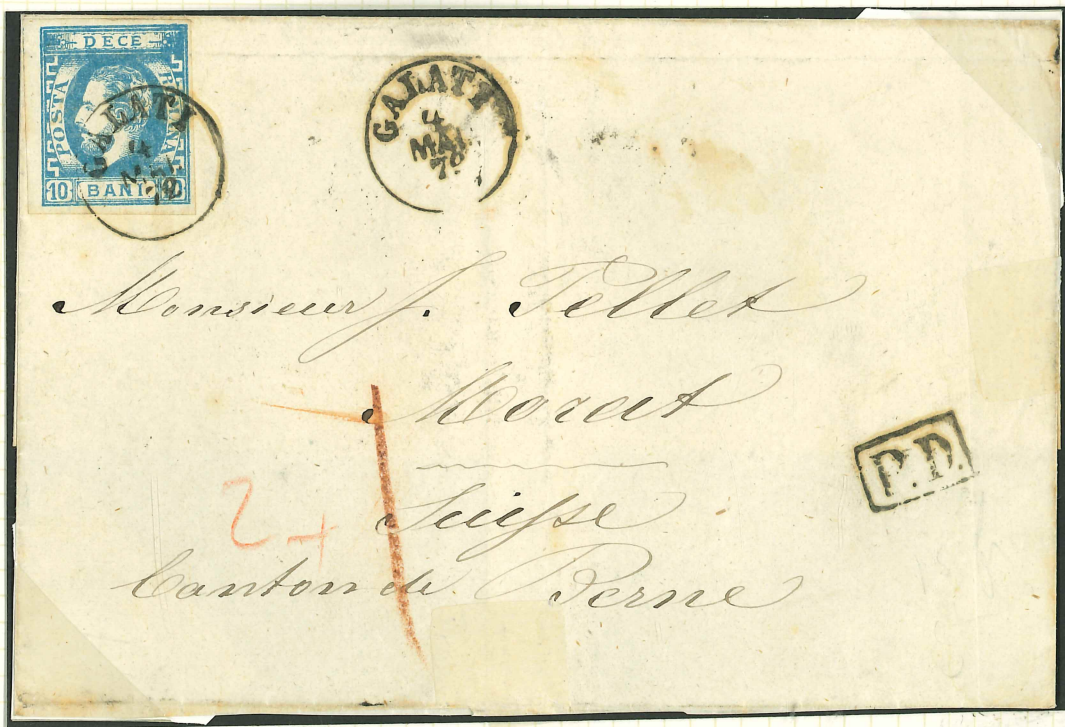 DECE
POSTA
10 BANI
GALATI
4
MAI
72
GALATI
4
MAI
72
Monsieur J. Pellet
Morat
P.D.
Suisse
2+
Canton de Berne